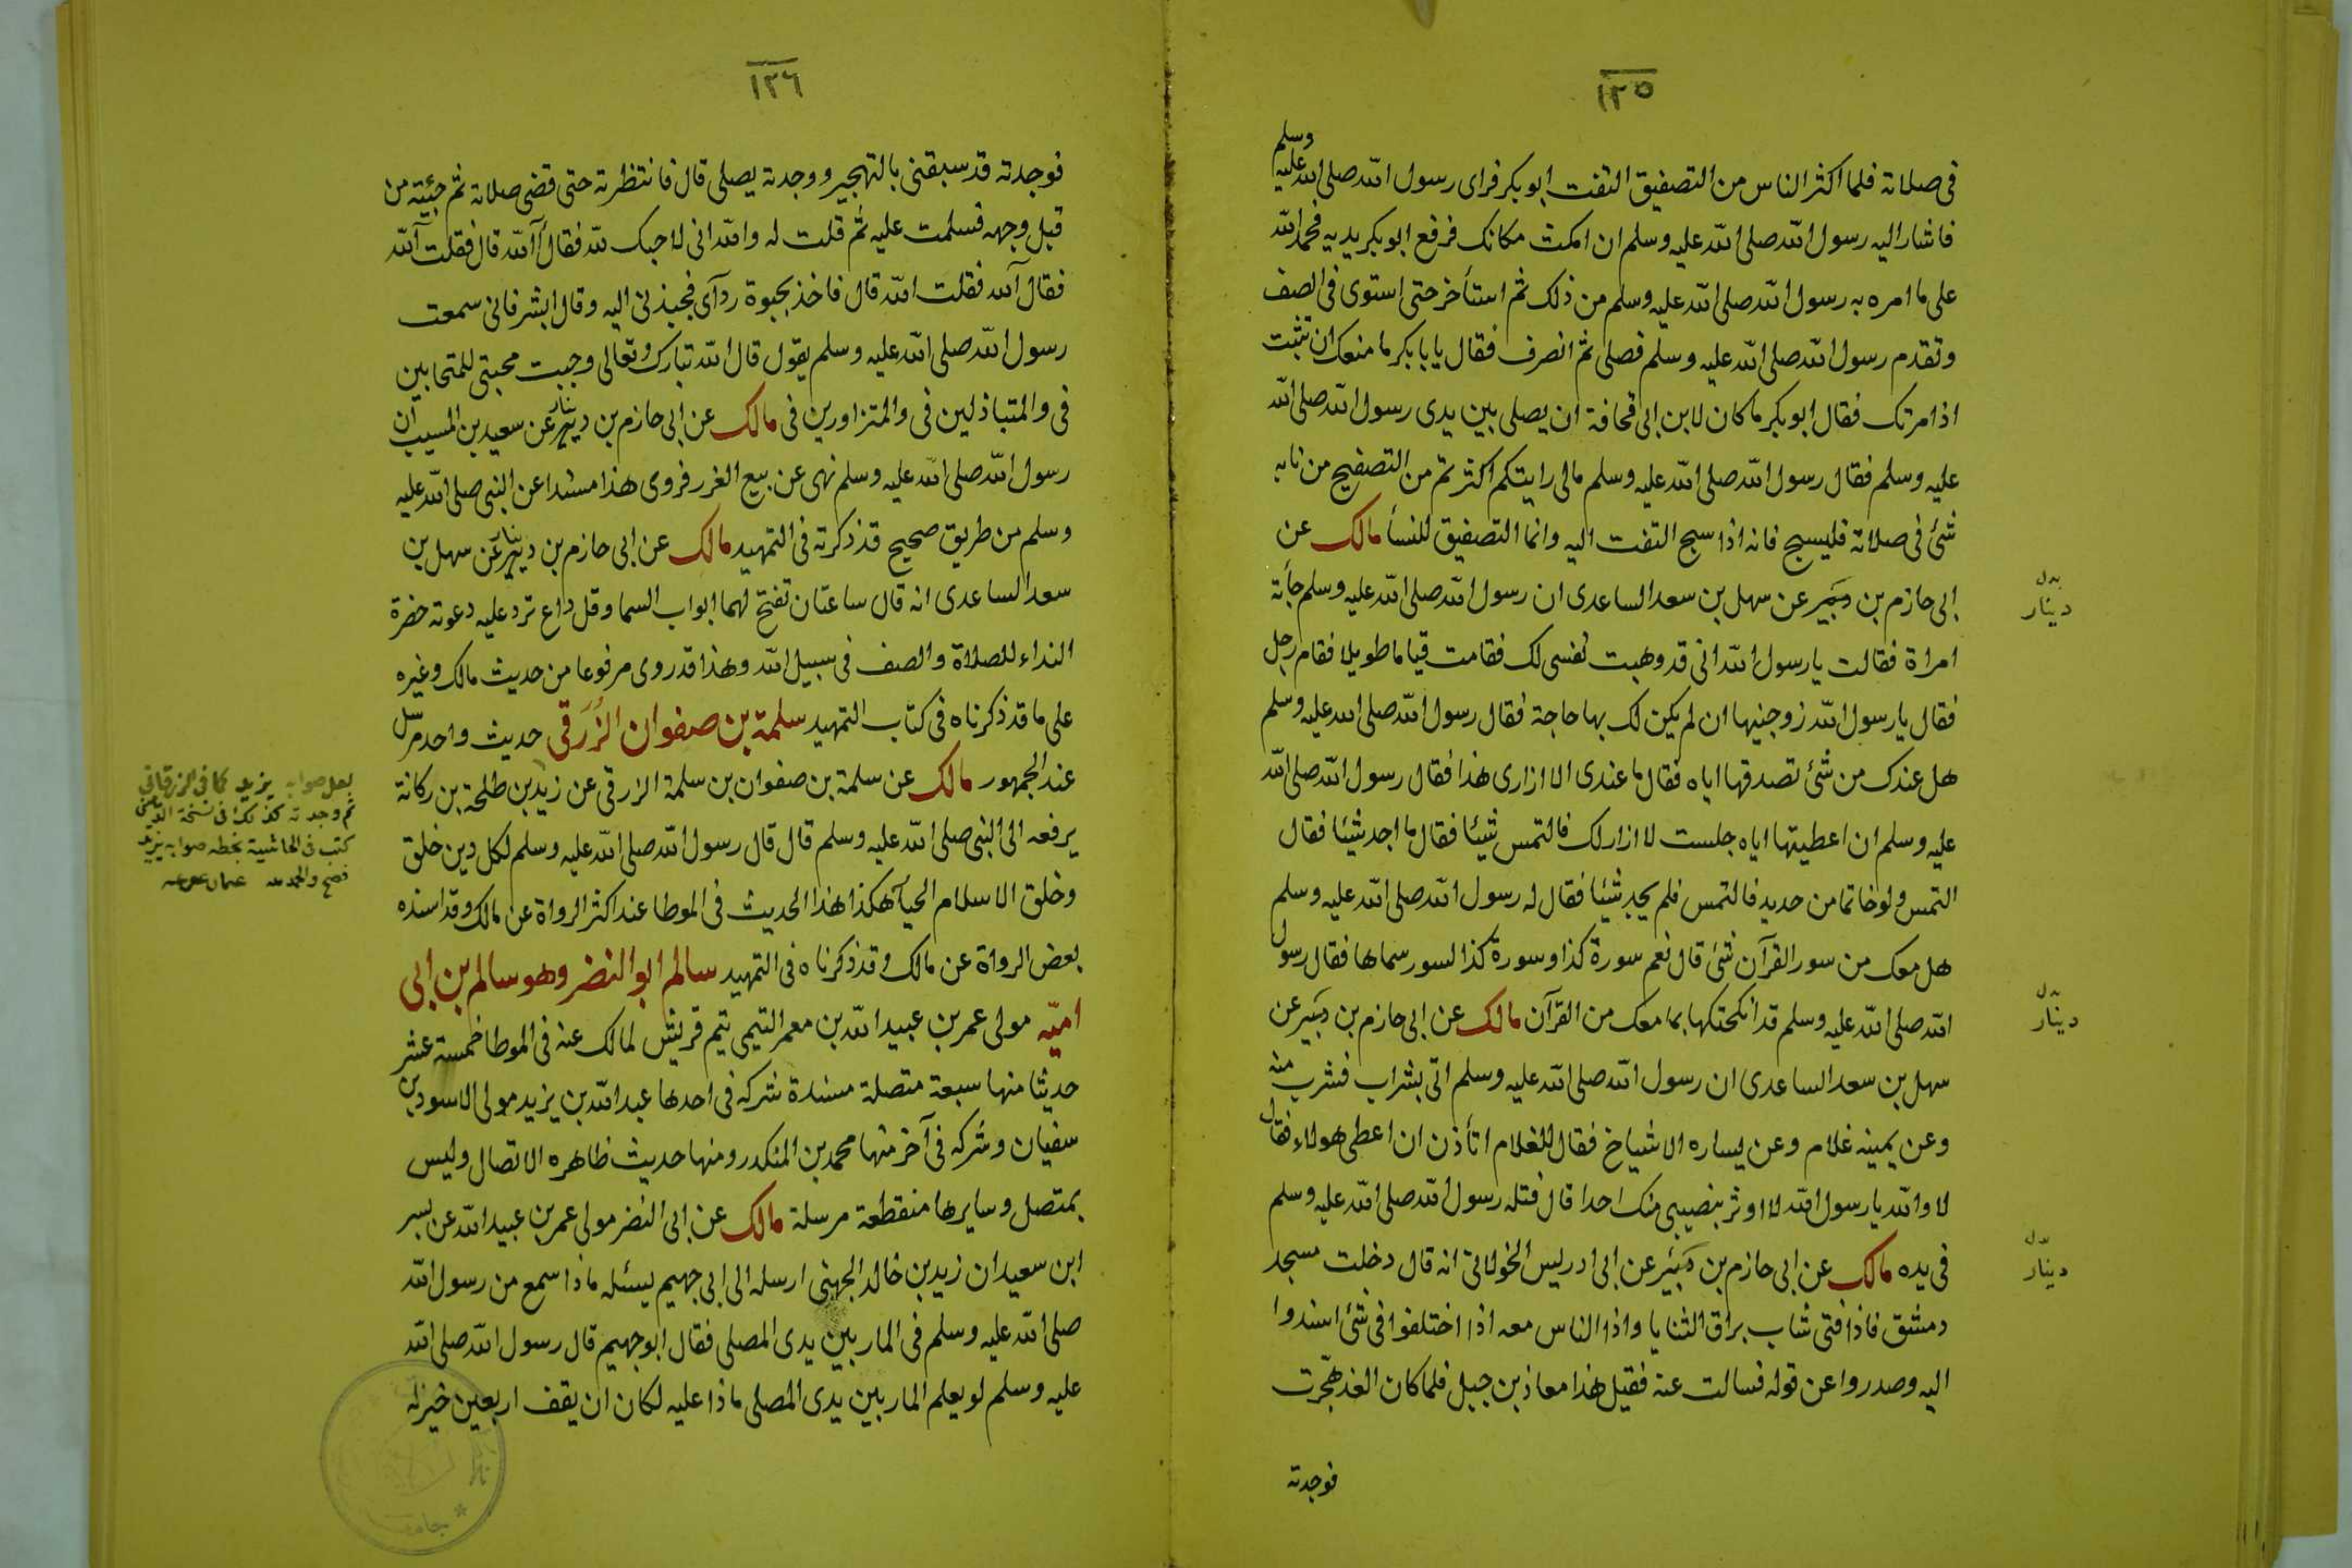 ١٢٥
فى صلاته فلما اكثر الناس من التصفيق التفت ابو بكر فراى رسول الله صلى الله عليه وسلم
فاشار اليه رسول الله صلى الله عليه وسلم ان امكث مكانك فرفع ابو بكر يديه فحمد الله
على ما امره به رسول الله صلى الله عليه وسلم من ذلك ثم استأخر حتى استوى فى الصف
وتقدم رسول الله صلى الله عليه وسلم فصلى ثم انصرف فقال يابا بكر ما منعك ان تثبت
اذ امرتك فقال ابو بكر ما كان لابن ابى قحافة ان يصلى بين يدى رسول الله صلى الله
عليه وسلم فقال رسول الله صلى الله عليه وسلم مالى رايتكم اكثرتم من التصفيح من نابه
شئ فى صلاته فليسبح فانه اذا سبح التفت اليه وانما التصفيق للنسأ مالك عن
ابى حازم بن عن سهل بن سعد الساعدى ان رسول الله صلى الله عليه وسلم جأته
بدل دينار
امراة فقالت يا رسول الله انى قد وهبت نفسى لك فقامت قياما طويلا فقام رجل
فقال يا رسول الله زوجنيها ان لم يكن لك بها حاجة فقال رسول الله صلى الله عليه وسلم
هل عندك من شئ تصدقها اياه فقال ما عندى الا ازارى هذا فقال رسول الله صلى الله
عليه وسلم ان اعطيتها اياه جلست لا ازار لك فالتمس شيئا فقال ما اجد شيئا فقال
التمس ولو خاتما من حديد فالتمس فلم يجد شيئا فقال له رسول الله صلى الله عليه وسلم
هل معك من سور القرآن شئ قال نعم سورة كذا وسورة كذا لسور سماها فقال رسول
الله صلى الله عليه وسلم قد انكحتكها بما معك من القرآن مالك عن ابى حازم بن عن
بدل دينار
سهل بن سعد الساعدى ان رسول الله صلى الله عليه وسلم اتى بشراب فشرب منه
وعن يمينه غلام وعن يساره الاشياخ فقال للغلام اتأذن ان اعطى هولاء فقال
لا والله يا رسول الله لا اوثر بنصيبى منك احدا قال فتله رسول الله صلى الله عليه وسلم
فى يده مالك عن ابى حازم بن عن ابى ادريس الخولانى انه قال دخلت مسجد
بدل دينار
دمشق فاذا فتى شاب براق الثنايا واذا الناس معه اذا اختلفوا فى شئ اسندوا
اليه وصدروا عن قوله فسالت عنه فقيل هذا معاذ بن جبل فلما كان الغد هجّرت
فوجدته
١٢٦
فوجدته قد سبقنى بالتهجير ووجدته يصلى قال فانتظرته حتى قضى صلاته ثم جئته من
قبل وجهه فسلمت عليه ثم قلت له والله انى لاحبك لله فقال آلله قال فقلت آلله
فقال آلله فقلت الله قال فاخذ بحبوة ردآى فجبذنى اليه وقال ابشر فانى سمعت
رسول الله صلى الله عليه وسلم يقول قال الله تبارك وتعالى وجبت محبتى للمتحابين
فى والمتباذلين فى والمتزاورين فى مالك عن ابى حازم بن دينار عن سعيد بن المسيب ان
رسول الله صلى الله عليه وسلم نهى عن بيع الغرر فروى هذا مسندا عن النبى صلى الله عليه
وسلم من طريق صحيح قد ذكرته فى التمهيد مالك عن ابى حازم بن دينار عن سهل بن
سعد الساعدى انه قال ساعتان تفتح لهما ابواب السما وقل داع ترد عليه دعوته حضرة
النداء للصلاة والصف فى سبيل الله وهذا قد روى مرفوعا من حديث مالك وغيره
على ما قد ذكرناه فى كتاب التمهيد سلمة بن صفوان الزُرَقى حديث واحد مرسل
عند الجمهور مالك عن سلمة بن صفوان بن سلمة الزرقى عن زيد بن طلحة بن ركانة
يرفعه الى النبى صلى الله عليه وسلم قال قال رسول الله صلى الله عليه وسلم لكل دين خلق
وخلق الاسلام الحيآ هكذا هذا الحديث فى الموطا عند اكثر الرواة عن مالك وقد اسنده
بعض الرواة عن مالك وقد ذكرناه فى التمهيد سالم ابو النضر وهو سالم بن ابى
اميّه مولى عمر بن عبيد الله بن معمر التيمى تيم قريش لمالك عنه فى الموطا خمسة عشر
حديثا منها سبعة متصلة مسندة شركه فى احدها عبد الله بن يزيد مولى الاسود بن
سفيان وشركه فى آخر منها محمد بن المنكدر ومنها حديث ظاهره الاتصال وليس
بمتصل وسايرها منقطعة مرسلة مالك عن ابى النضر مولى عمر بن عبيد الله عن بسر
ابن سعيد ان زيد بن خالد الجهنى ارسله الى ابى جهيم يسئله ماذا سمع من رسول الله
صلى الله عليه وسلم فى المار بين يدى المصلى فقال ابو جهيم قال رسول الله صلى الله
عليه وسلم لو يعلم المار بين يدى المصلى ماذا عليه لكان ان يقف اربعين خير له
لعل صوابه يزيد كما فى الزرقانى
ثم وجدته كذلك فى نسخة
كتب فى الحاشية بخطه صوابه يزيد
فصح والحمد لله
جامعة